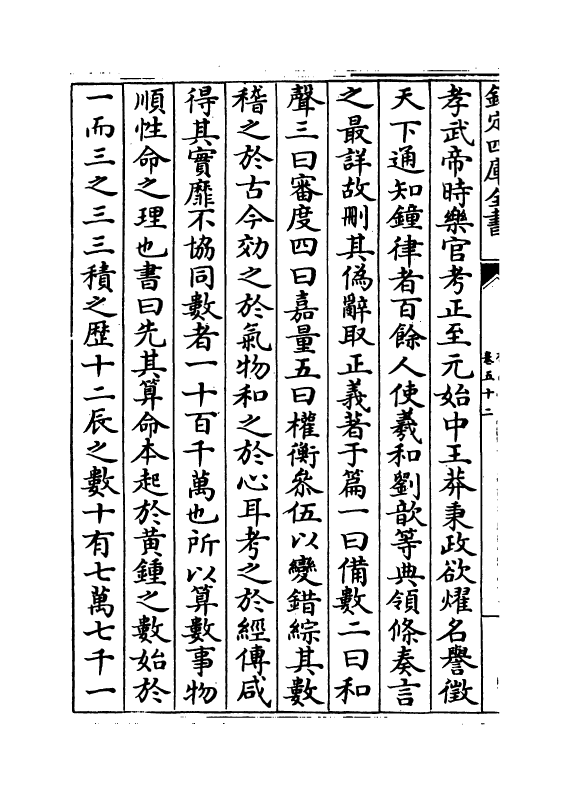 欽定四庫全書
卷五十二
孝武帝時樂官考正至元始中王莽秉政欲燿名譽徵
天下通知鐘律者百餘人使羲和劉歆等典領條奏言
之最詳故刪其偽辭取正義著于篇一曰備數二曰和
聲三曰審度四曰嘉量五曰權衡叅伍以變錯綜其數
稽之於古今効之於氣物和之於心耳考之於經傳咸
得其實靡不協同數者一十百千萬也所以算數事物
順性命之理也書曰先其算命本起於黄鍾之數始於
一而三之三三積之歴十二辰之數十有七萬七千一